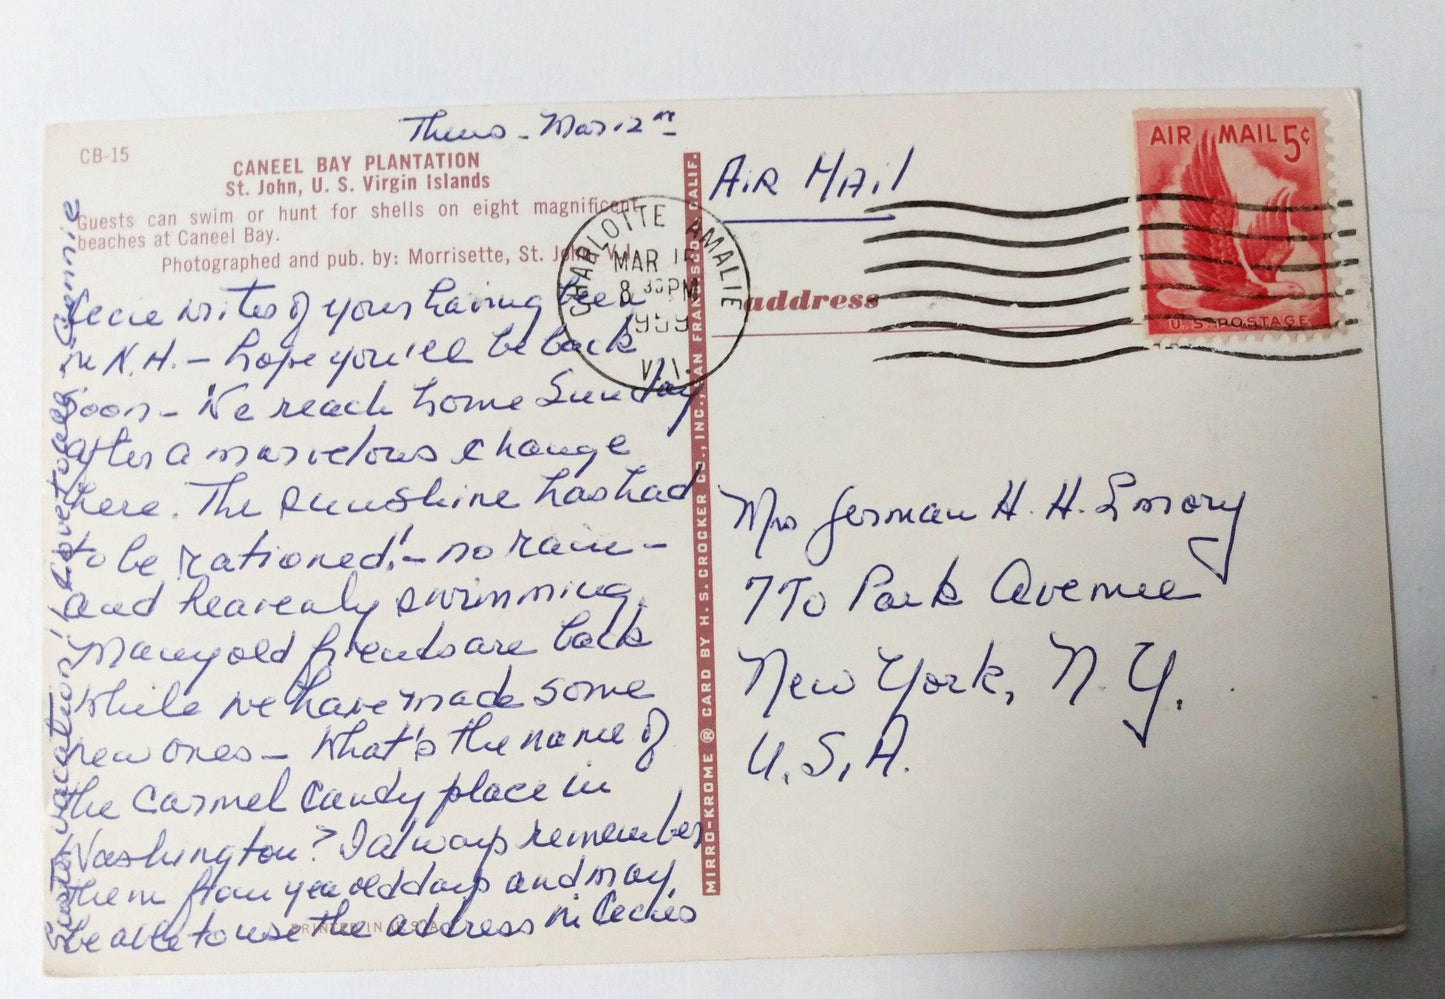 Thurs - Mar. 12th
CB-15
CANEEL BAY PLANTATION
St. John, U. S. Virgin Islands
Guests can swim or hunt for shells on eight magnificent
beaches at Caneel Bay.
Photographed and pub. by: Morrisette, St. John, V.I.
Cecie writes of your having been
in N.H. - hope you'll be back
soon - We reach home Sunday
after a marvelous change
here. The sunshine has had
to be rationed! - no rain -
and heavenly swimming.
Many old friends are back
while we have made some
new ones - What's the name of
the Carmel Candy place in
Washington? I always remember
them from yea old days and may
be able to use the address in Cecie's
Easter vacation! Love to all, Sammie
PRINTED IN U.S.A.
MIRRO-KROME ® CARD BY H. S. CROCKER CO., INC., SAN FRANCISCO, CALIF.
CHARLOTTE AMALIE
MAR 15
8 30 PM
1959
V.I.
AIR MAIL
AIR MAIL 5¢
U.S. POSTAGE
address
Mrs German H. H. Emory
770 Park Avenue
New York, N.Y.
U.S.A.